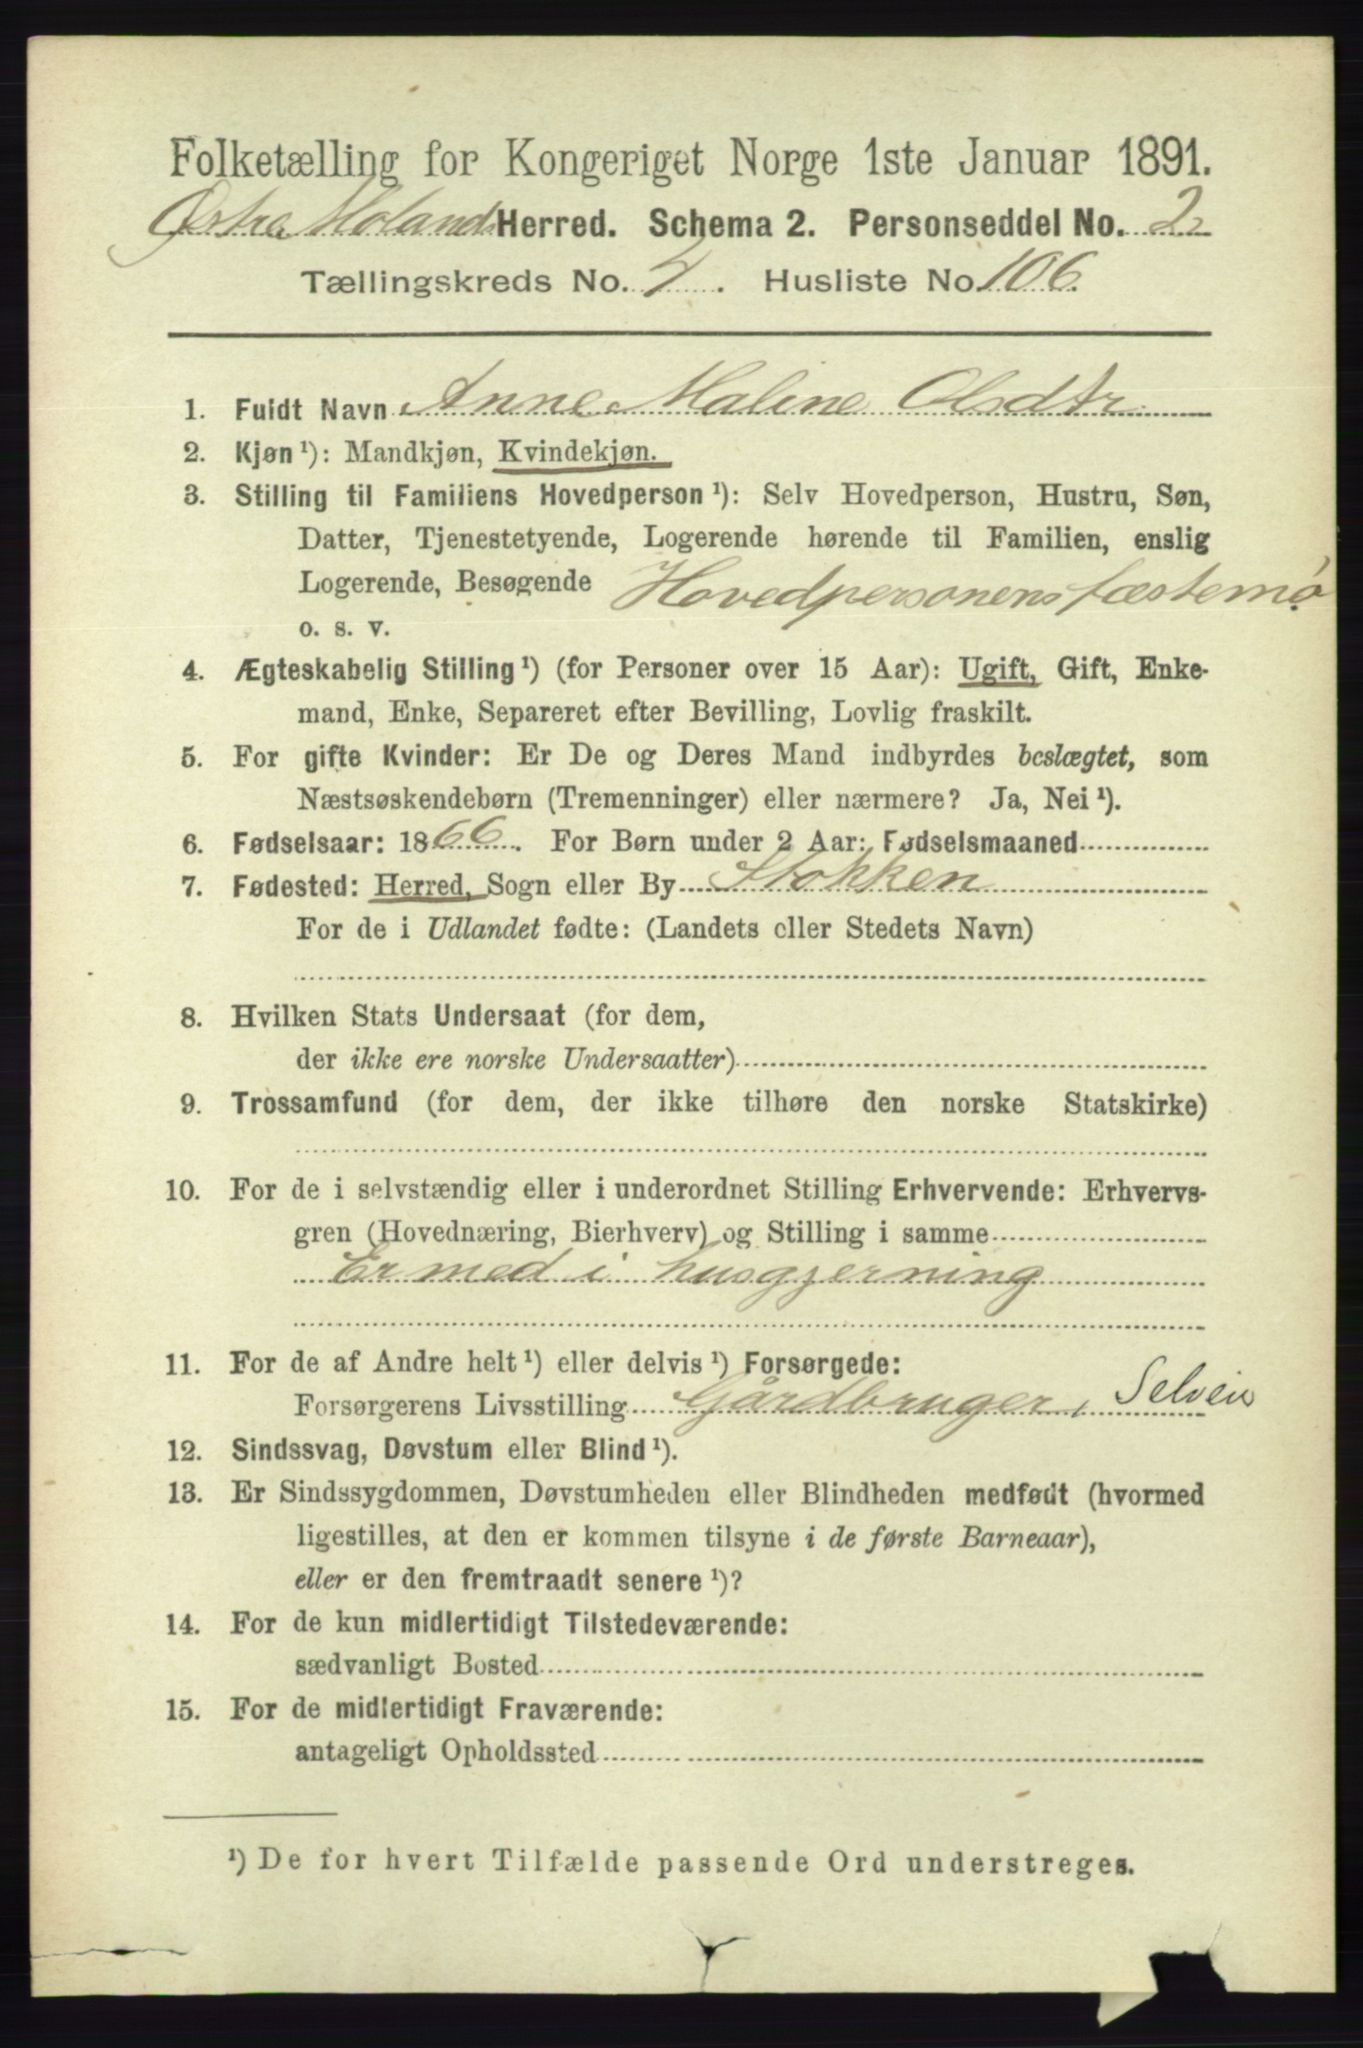 Folketælling for Kongeriget Norge 1ste Januar 1891.
Østre Moland Herred. Schema 2. Personseddel No. 2
Tællingskreds No. . Husliste No. 106.
1. Fuldt Navn Anne Maline Olsdtr
2. Kjøn¹): Mandkjøn, Kvindekjøn.
3. Stilling til Familiens Hovedperson¹): Selv Hovedperson, Hustru, Søn,
Datter, Tjenestetyende, Logerende hørende til Familien, enslig
Logerende, Besøgende Hovedpersonens fæstemø
o. s. v.
4. Ægteskabelig Stilling¹) (for Personer over 15 Aar): Ugift, Gift, Enke-
mand, Enke, Separeret efter Bevilling, Lovlig fraskilt.
5. For gifte Kvinder: Er De og Deres Mand indbyrdes beslægtet, som
Næstsøskendebørn (Tremenninger) eller nærmere? Ja, Nei¹).
6. Fødselsaar: 1866. For Børn under 2 Aar: Fødselsmaaned
7. Fødested: Herred, Sogn eller By Stokken
For de i Udlandet fødte: (Landets eller Stedets Navn)
8. Hvilken Stats Undersaat (for dem,
der ikke ere norske Undersaatter)
9. Trossamfund (for dem, der ikke tilhøre den norske Statskirke)
10. For de i selvstændig eller i underordnet Stilling Erhvervende: Erhvervs-
gren (Hovednæring, Bierhverv) og Stilling i samme
Er med i husgjerning
11. For de af Andre helt¹) eller delvis¹) Forsørgede:
Forsørgerens Livsstilling Gårdbruger, Selveier
12. Sindssvag, Døvstum eller Blind¹).
13. Er Sindssygdommen, Døvstumheden eller Blindheden medfødt (hvormed
ligestilles, at den er kommen tilsyne i de første Barneaar),
eller er den fremtraadt senere¹)?
14. For de kun midlertidigt Tilstedeværende:
sædvanligt Bosted
15. For de midlertidigt Fraværende:
antageligt Opholdssted
¹) De for hvert Tilfælde passende Ord understreges.